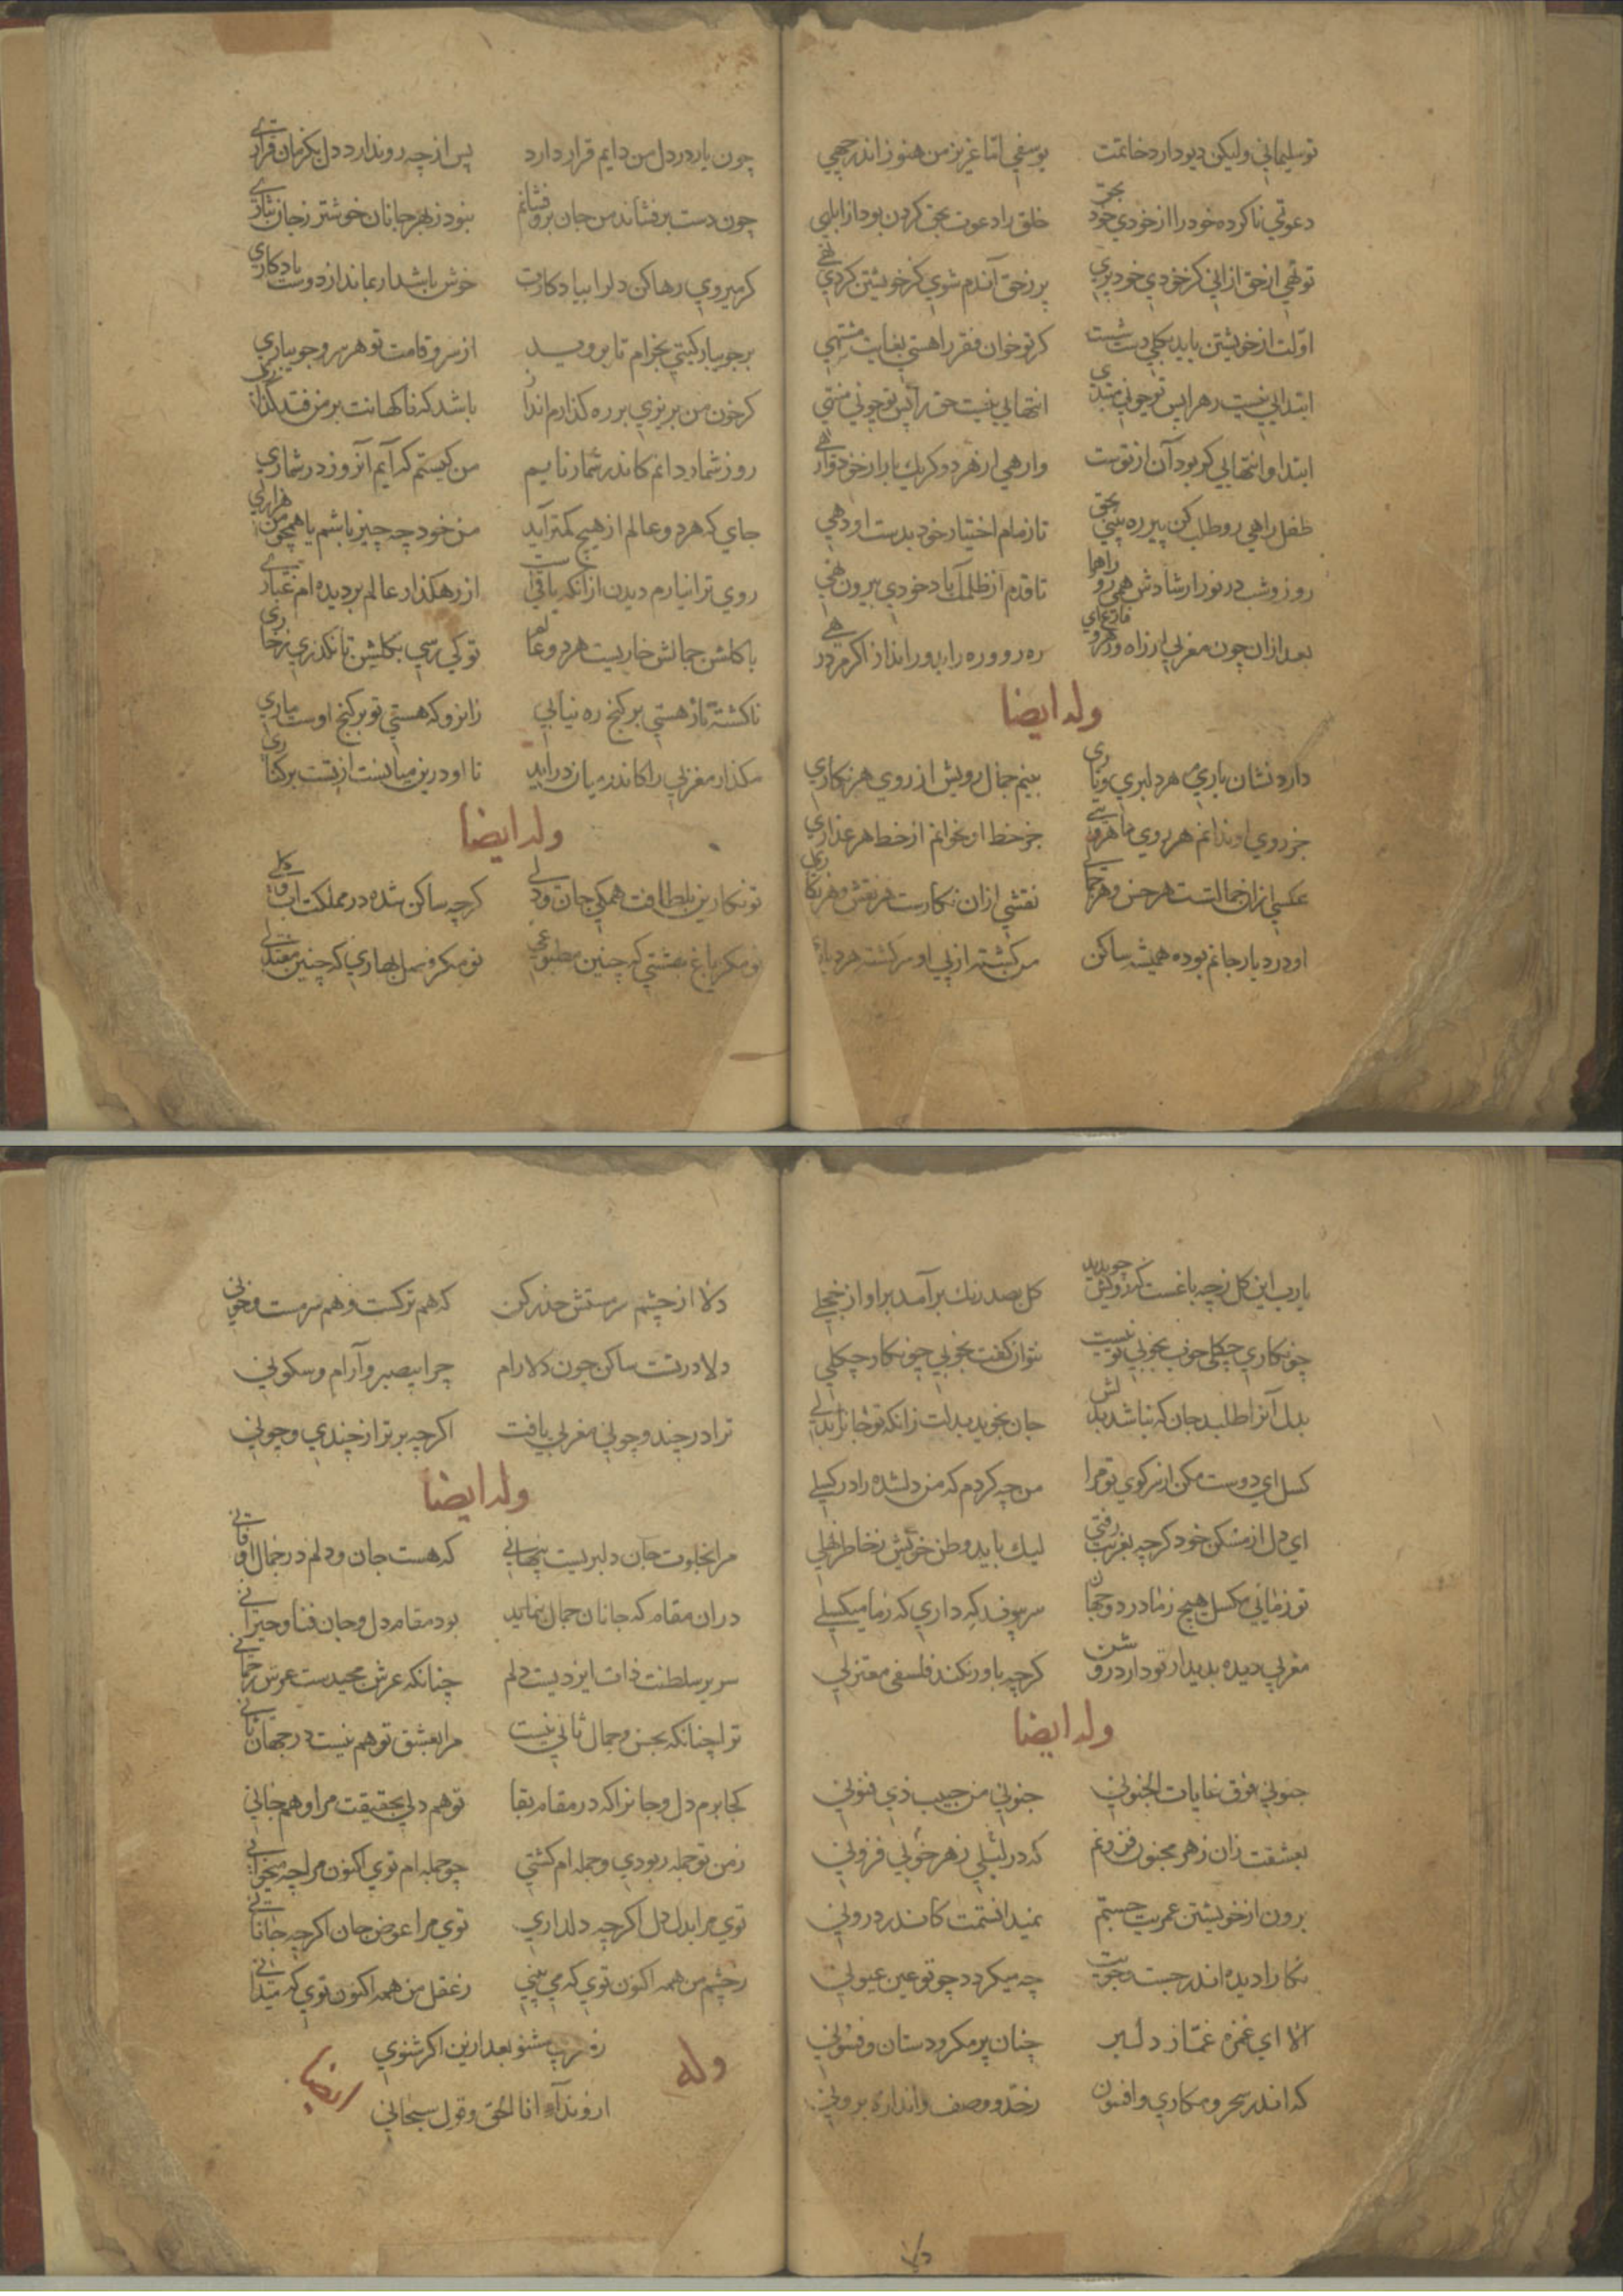 تو سلیمانی ولیکن دیو دارد خاتمت یوسفی اما عزیز من هنوز اندر چهی
دعوتی ناکرده خود را از خودی خود بحق خلق را دعوت بحق کردن بود از ابلهی
تو تهی از حق ازانی کز خودی خود پری پر ز حق آندم شوی کز خویشتن کردی تهی
اولت از خویشتن باید بکلی دست شست کر تو خوان فقر را هستی بغایت مشتهی
ابتدایی نیست رهرا پس تو چونی مبتدی انتهایی نیست حق را پس تو چونی منتهی
ابتدا و انتهایی کو بود آن از توست وارهی از هر دو کر یکبار از خود وارهی
طفل راهی رو طلب کن پیر ره بینی بحق تا زمام اختیار خود بدست او دهی
روز و شب در نور ارشادش همی رو راهرا تا قدم از ظلمت آباد خودی بیرون نهی
بعد ازان چون مغربی از راه و رهرو فارغ آی ره رو و ره را بدور انداز اکر مرد رهی
وله ایضا
دارد نشان یاری هر دلبری و یاری بینم جمال رویش از روی هر نکاری
جز روی او ندانم هر روی ماهرویی جز خط او نخوانم از خط هر عذاری
عکسی ازان جمالست هر حسن و هر جمالی نقشی ازان نکارست هر نقش و هر نکاری
او در دیار جانم بوده همیشه ساکن من کشته از پی او سرکشته هر دیاری
چون یار در دل من دایم قرار دارد پس از چه رو ندارد دل یکزمان قراری
چون دست برفشاند من جان برو فشانم نبود ز بهر جانان خوشتر ز جان نثاری
کر میروی رها کن دلرا بیادکارت خوش باشد ار بماند از دوست یادکاری
بر جویبار کیتی بخرام تا بروید از سرو قامت تو هر سرو جویباری
کر خون من بریزی بر ره کذارم انداز باشد که ناکهانت بر من فتد کذاری
روز شمار دانم کاندر شمار نایم من کیستم که آیم آنروز در شماری
جای که هر دو عالم از هیچ کمتر آید من خود چه چیز باشم یا همچو من هزاری
روی ترا نیارم دیدن ازانکه باقیست از رهکذار عالم بر دیده ام غباری
با کلشن جمالش خاریست هر دو عالم تو کی رسی بکلشن تا نکذری ز خاری
ناکشته مار هستی بر کنج ره نیابی زانرو که هستی تو بر کنج اوست ماری
مکذار مغربی را کاندر میان درآید تا او درین میانست از تست بر کناری
وله ایضا
تو نکارین بلطافت همکی جان و دلی کرچه ساکن شده در مملکت آب و کلی
تو مکر باغ بهشتی که چنین مطبوعی تو مکر فصل بهاری که چنین معتدلی
یارب این کل ز چه باغست که رویش چو بدید کل بصد رنک برآمد بر او از خجلی
چو نکاری چکلی خوب بخوبی تو نیست نتوان کفت بخوبی چو نکار چکلی
بدل آنرا طلبد جان که نباشد بدلش جان نجوید بدلت زانکه تو جانرا بدلی
کسل ای دوست مکن از سر کوی تو مرا من چه کردم که من دلشده را در کسلی
ای دل از مسکن خود کرچه بغربت رفتی لیک باید وطن خویش بخاطر نهلی
تو زمانی مکسل هیچ ز ما در دو جهان سر پیوند که داری که ز ما میکسلی
مغربی دیده بدیدار تو دارد روشن کرچه باور نکند فلسفی معتزلی
وله ایضا
جنونی فوق غایات الجنونی جنونی من حبیب ذی فنونی
بعشقت زان ز هر مجنون فزونم که در لیلی ز هر خوبی فزونی
برون از خویشتن عمریت جستم نمیدانستمت کاندر درونی
نکارا دیده اندر جست و جویت چه میکردد چو تو عین عیونی
الا ای غمزه غماز دلبر چنان پر مکر و دستان و فسونی
که اندر سحر و مکاری و افسون ز حد و وصف و اندازه برونی
دلا از چشم سرمستش حذر کن که هم ترکست و هم سرمست و خونی
دلا در تست ساکن چون دلارام چرا بیصبر و آرام و سکونی
ترا در چند و چونی مغربی یافت اکرچه برتر از چندی و چونی
وله ایضا
مرا بخلوت جان دلبریست پنهانی که هست جان و دلم در جمال او فانی
دران مقام که جانان جمال بنماید بود مقام دل و جان فنا و حیرانی
سریر سلطنت ذات ایزدیست دلم چنانکه عرش مجیدست عرش رحمانی
ترا چنانکه بحسن و جمال ثانی نیست مرا بعشق تو هم نیست در جهان ثانی
کجا برم دل و جانرا که در مقام بقا تو هم دلی بحقیقت مرا و هم جانی
ز من تو جمله ربودی و جمله ام کشتی چو جمله ام توی اکنون مرا چه میخوانی
توی مرا بدل دل اکرچه دلداری توی مرا عوض جان اکرچه جانانی
ز چشم من همه اکنون توی که می بینی ز عقل من همه اکنون توی که میدانی
ز مغربی مشنو بعد ازین اکر شنوی
ازو ندآء انا الحق و قول سبحانی
وله ایضا